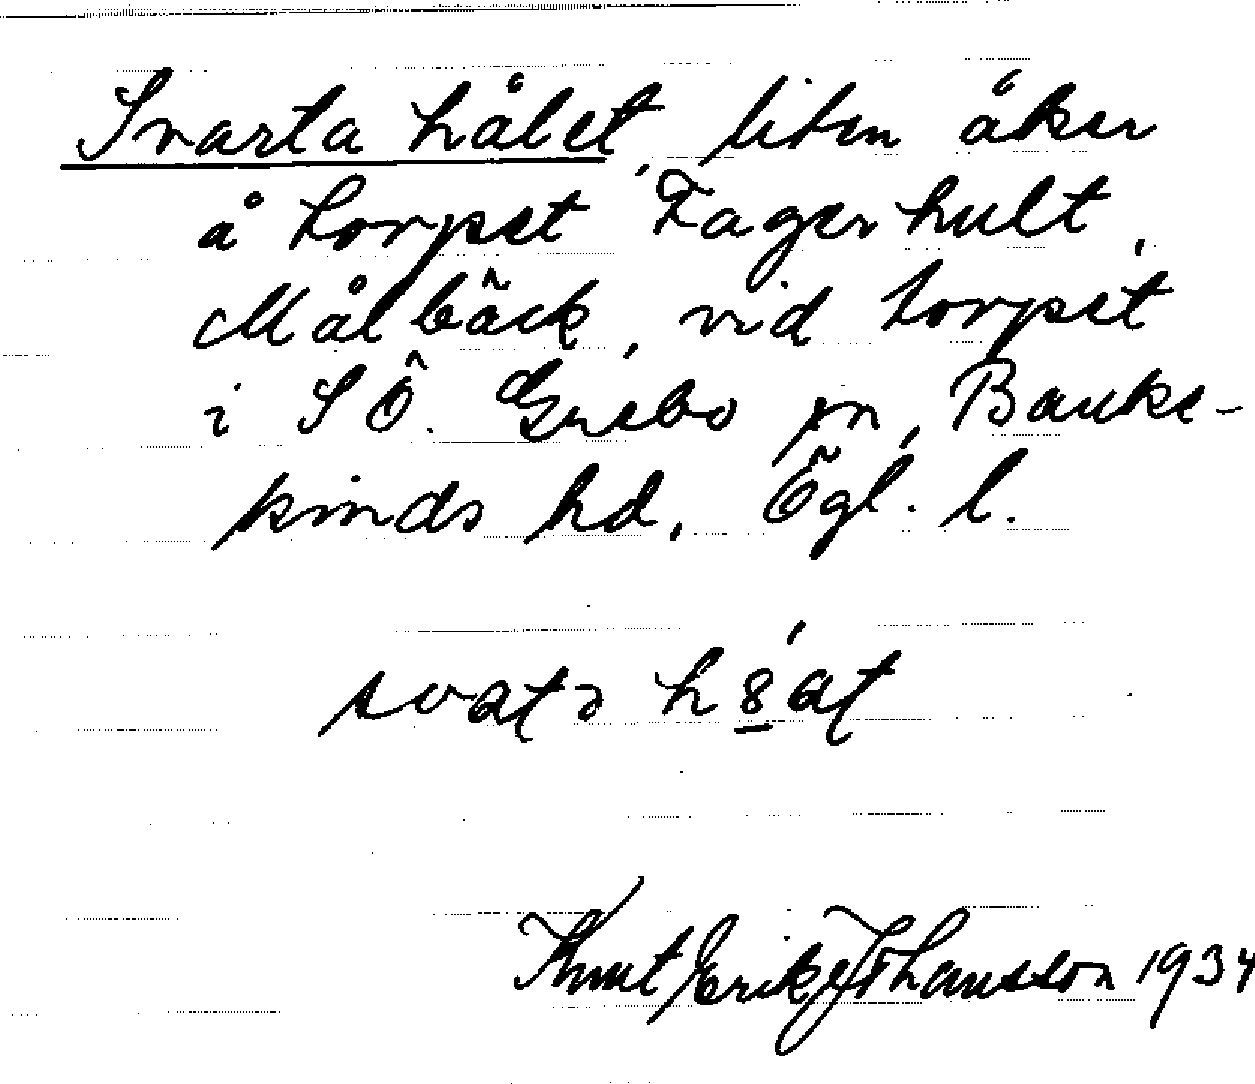 Svarta hålet, liten åker
å torpet Fagerhult,
Målbäck, vid torpet
i SÖ. Grebo sn, Banke-
kinds hd, Ögl. l.
svata h8́at
Knut Erik Johansson 1934